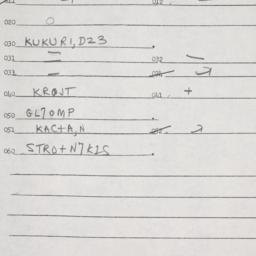 020 O
030 KUKURI,D23 .
031 = 032 —
033 —
040 KROJT 041 . +
050 GL7OMP
051 KACTA,N
060 STRO+N7KIS .